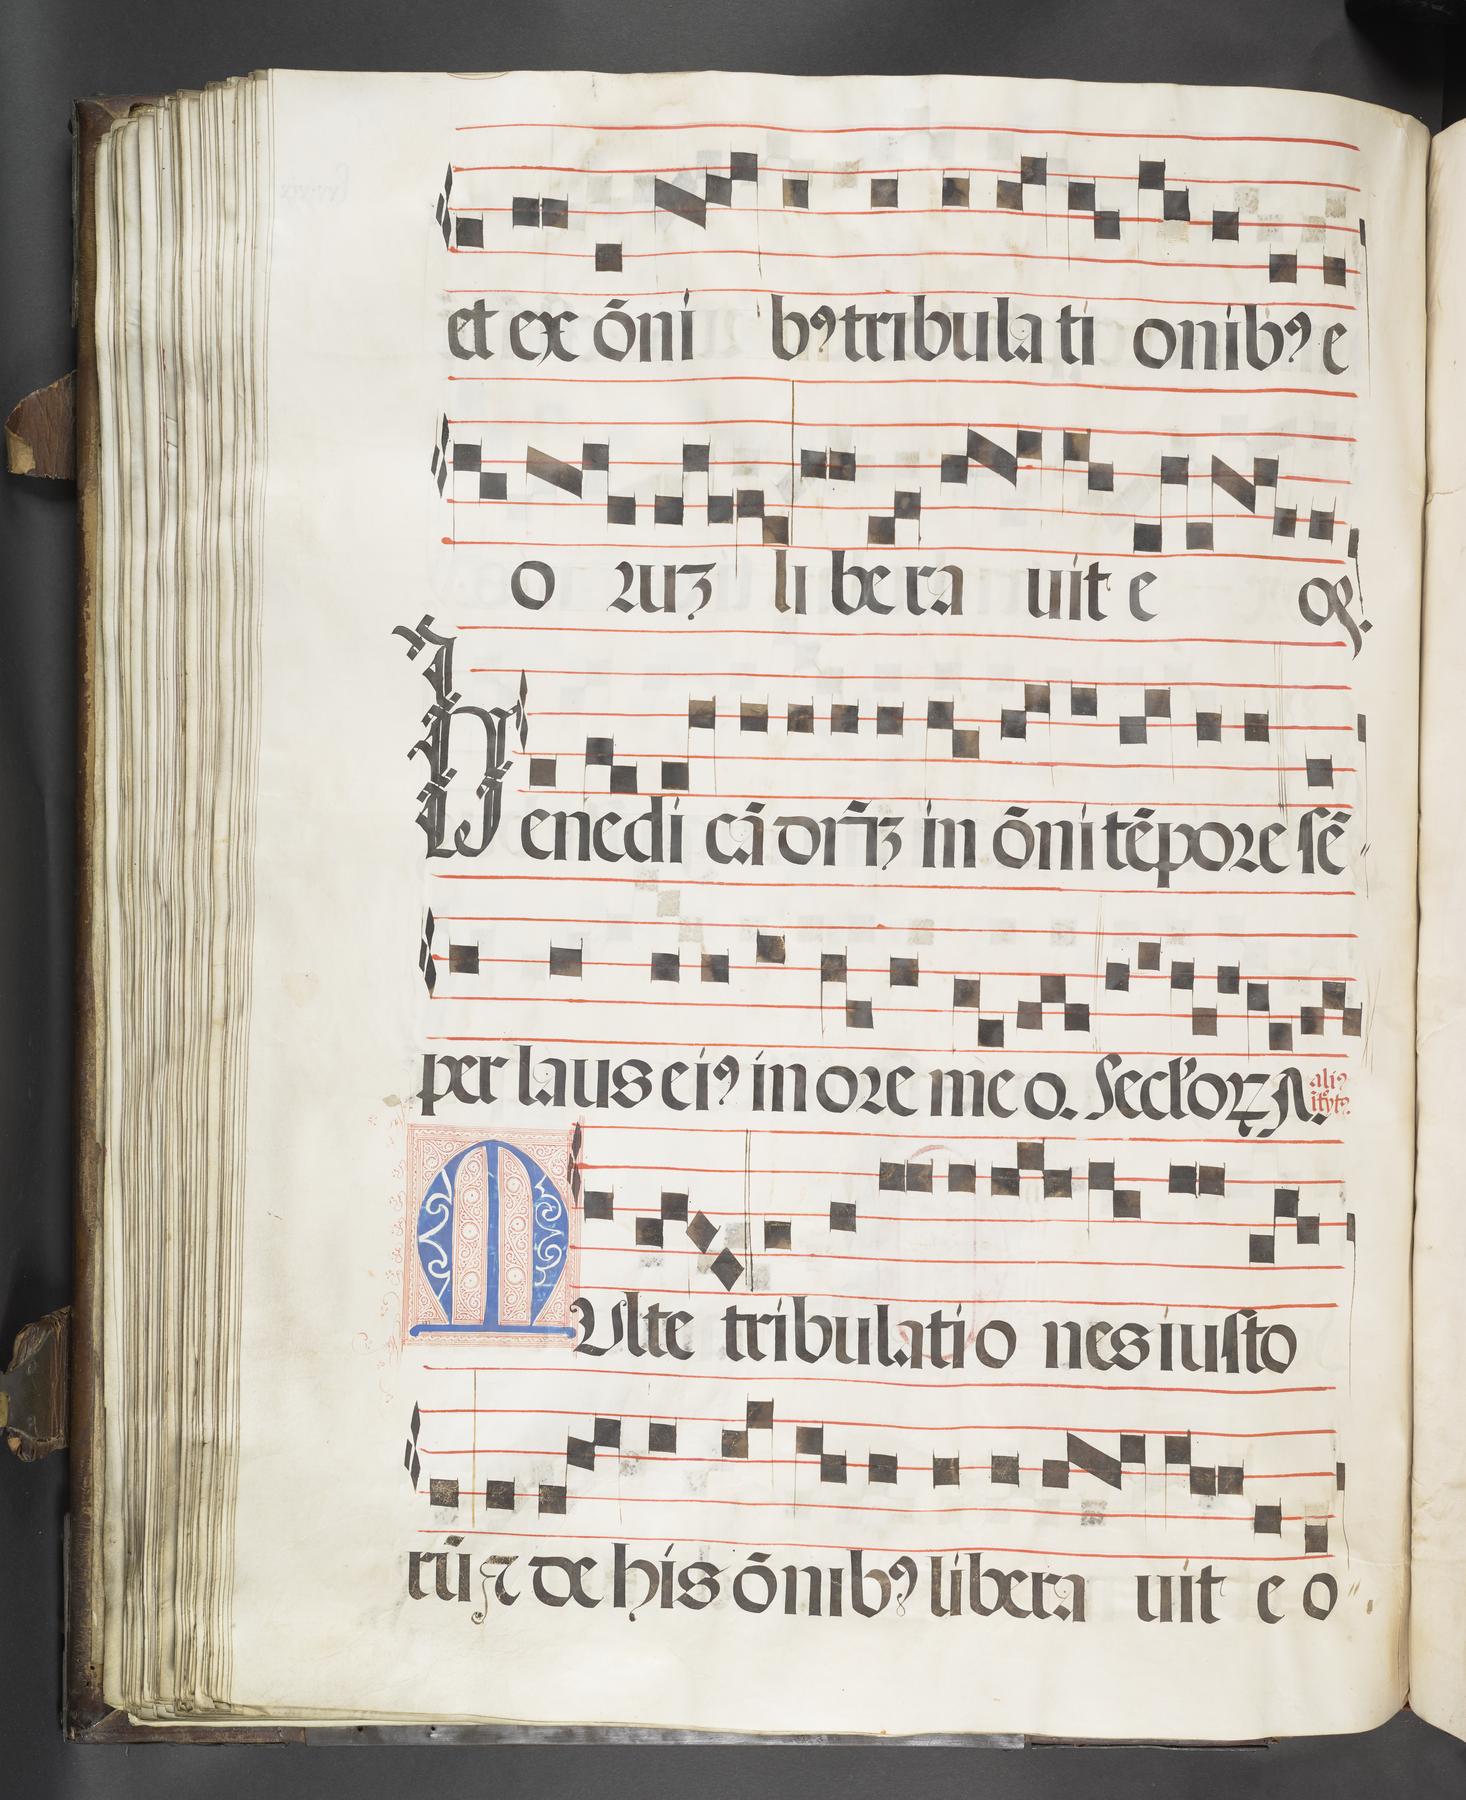 et ex õni bꝰ tribulati onibꝰ e
o ꝛuꝫ libera uit e os.
Benedicã dñꝫ in õni tẽpoꝛe ſẽ
per laus eiꝰ in oꝛe meo. Secl'oꝝ A.
MUlte tribulatio nes iuſto
rũ ⁊ de his õnibꝰ libera uit e o